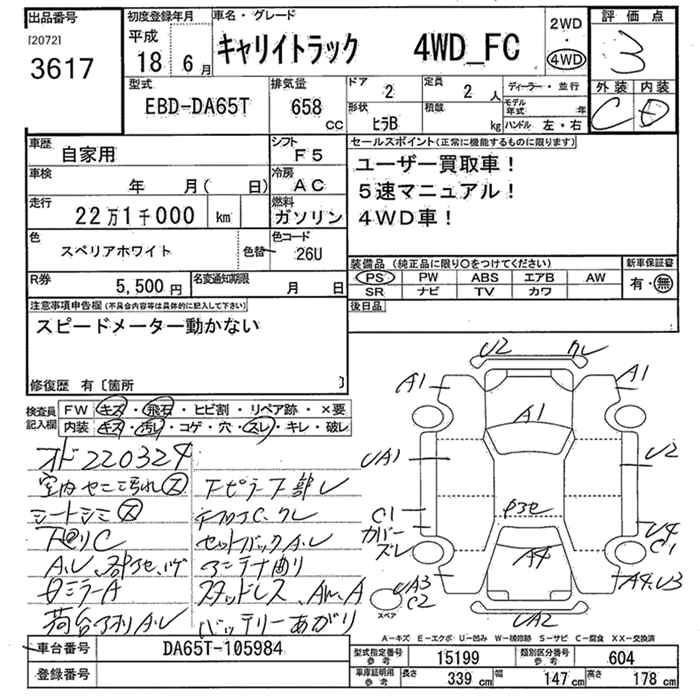 出品番号
[2072]
3617
初度登録年月
平成
18 6月
車名・グレード
キャリイトラック 4WD_FC
2WD
・
4WD
評価点
3
外装 内装
C D
型式
EBD-DA65T
排気量
658 CC
ドア
2
定員
2 人
ディーラー・並行
形状
ヒラB
積酷
kg
モデル年式 年
ハンドル 左・右
車歴
自家用
シフト
F5
車検
年 月( 日)
冷房
AC
走行
22万1千000 km
燃料
ガソリン
色
スペリアホワイト
色替
色コード
26U
R券
5,500円
名変通知期限
月 日
セールスポイント(正常に機能するものに限ります)
ユーザー買取車!
5速マニュアル!
4WD車!
装備品(純正品に限り○をつけてください)
PS PW ABS エアB AW
SR ナビ TV カワ
新車保証書
有・無
後日品
注意事項申告欄(不具合内容等は具体的に記入して下さい)
スピードメーター動かない
修復歴 有〔箇所 〕
検査員
記入欄
FW キズ・飛石・ヒビ割・リペア跡・×要
内装 キズ・汚レ・コゲ・穴・スレ・キレ・破レ
オド220324
室内ヤニ汚れ大
シートシミ大
下回りC
A.U、部サビ、ハゲ
Dミラー A
荷台アオリA.U
下ピラー下部U
デフロアC.クレ
セットバックA.U
アンテナ曲り
スタッドレス、AW.A
バッテリーあがり
U2 クレ
A1 A1
A1
UA1 U2
C1
カバーズレ
U4
C1
A4
UA3
C2
スペア
A4.U3
UA2
A-キズ E-エクボ U-凹み W-補修跡 S-サビ C-腐食 XX-交換済
車台番号
DA65T-105984
登録番号
型式指定番号
参考
15199
類別区分番号
参考
604
車庫証明用
参考
長さ 339cm 幅 147cm 高さ 178cm